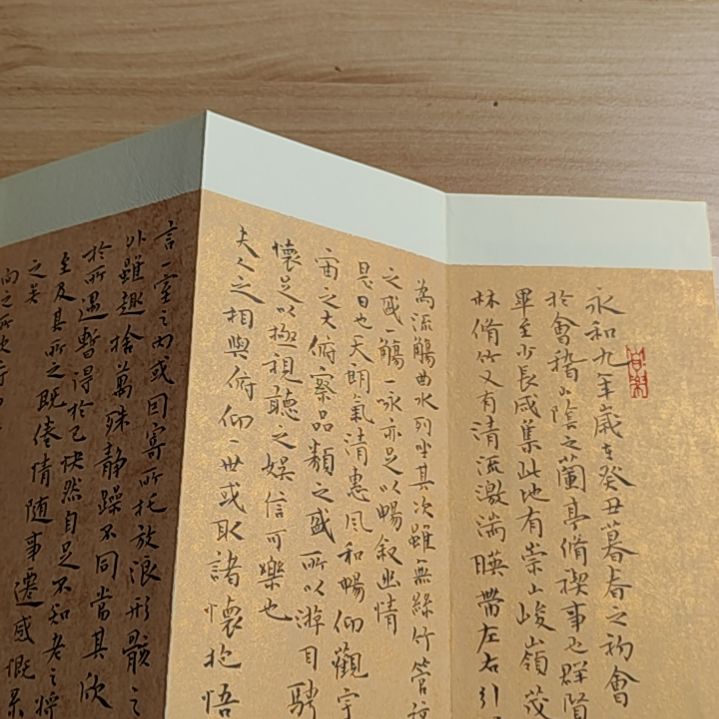 永和九年歲在癸丑暮春之初會
於會稽山陰之蘭亭脩禊事也群賢
畢至少長咸集此地有崇山峻嶺茂
林脩竹又有清流激湍暎帶左右引
為流觴曲水列坐其次雖無絲竹管
之盛一觴一詠亦足以暢叙幽情
是日也天朗氣清惠風和暢仰觀宇
宙之大俯察品類之盛所以游目騁
懷足以極視聽之娛信可樂也
夫人之相與俯仰一世或取諸懷抱悟
言一室之內或因寄所托放浪形骸之
外雖趣捨萬殊静躁不同當其欣
於所遇暫得於己快然自足不知老之將
至及其所之既倦情随事遷感慨係
之矣
向之所欣